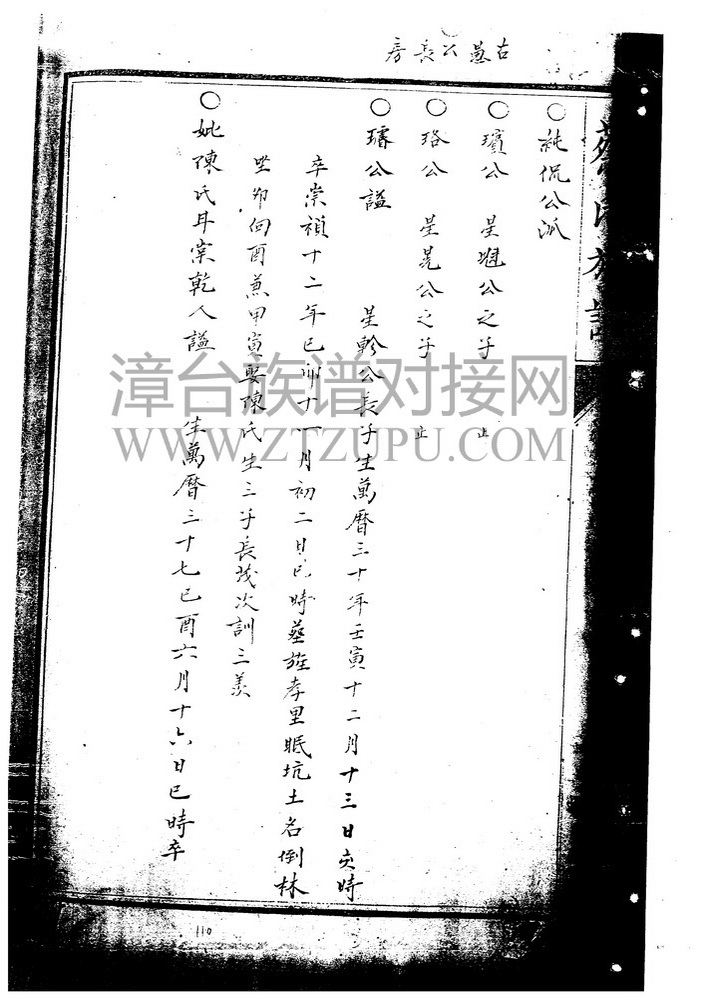 古愚公長房
○純侃公派
○璸公 星魁公之子 止
○珞公 星晃公之子 止
○璿公謚 星軫公長子生萬曆三十年壬寅十二月十三日亥時
卒崇禎十二年己卯十一月初二日巳時葬旌孝里眠坑土名倒林
坐卯向酉兼甲寅娶陳氏生三子長茂次訓三羡
○妣陳氏耳棠乾人謚 生萬曆三十七己酉六月十六日巳時卒
漳台族谱对接网
WWW.ZTZUPU.COM
110